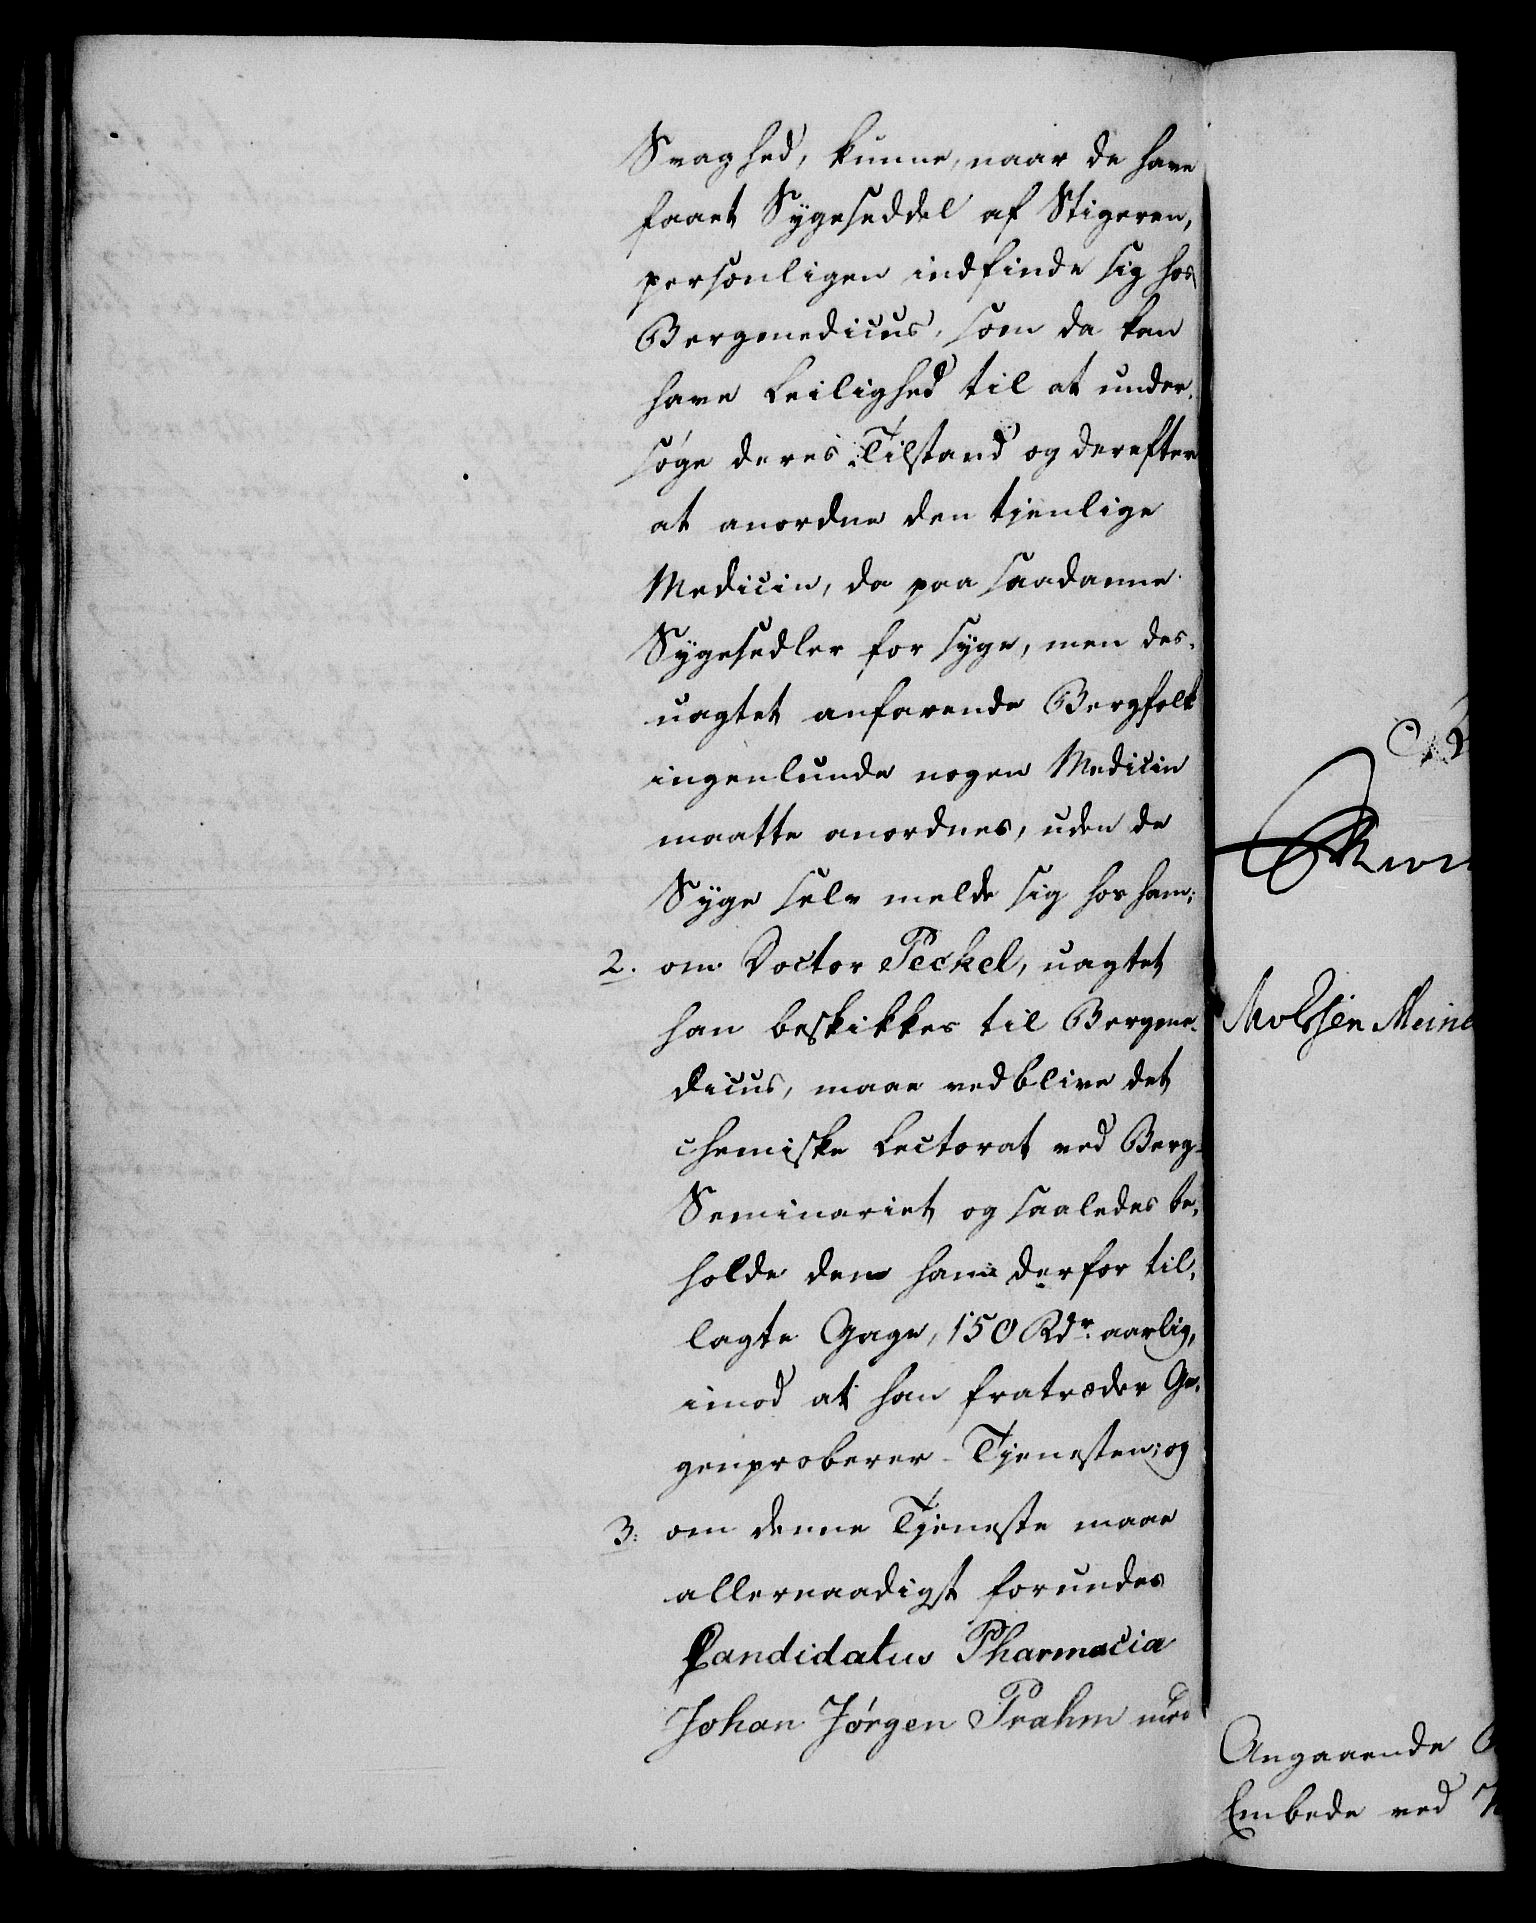 Svaghed, kunne, naar de have
faaet Sygeseddel af Stigeren,
personligen indfinde sig hos
Bergmedicus, som da kan
have Leilighed til at under-
søge deres Tilstand og derefter
at anordne den tjenlige
Medicin, da paa saadanne
Sygesedler for syge, men des-
uagtet anfarende Bergfolk
ingenlunde nogen Medicin
maatte anordnes, uden de
Syge selv melde sig hos ham;
2. om Doctor Peckel, uagtet
han beskikkes til Bergme-
dicus, maae vedblive det
chemiske Lectorat ved Berg-
Seminariet og saaledes be-
holde den ham derfor til-
lagte Gage, 150 Rdr. aarlig,
imod at han fratræder Ge-
genproberer-Tjenesten; og
3. om denne Tjeneste maae
allernaadigst forundes
Candidatus Pharmacia
Johan Jørgen Prahm med
Angaaende
Embede ved